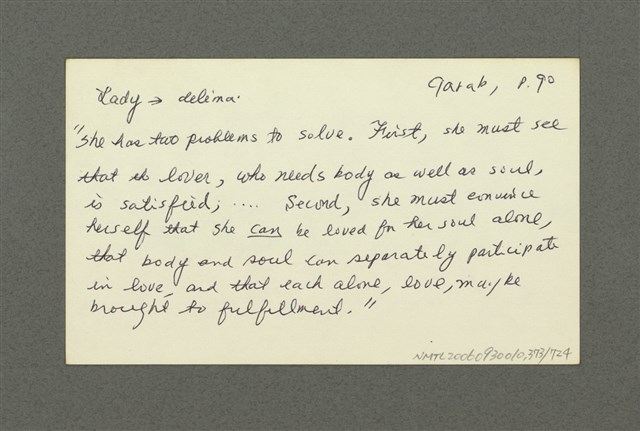 Lady → delima.
Garab, P.90
"She has two problems to solve. First, she must see
that th lover, who needs body as well as soul,
is satisfied; .... Second, she must convince
herself that she can be loved for her soul alone,
that body and soul can separately participate
in love, and that each alone, love, may be
brought to fulfillment."
NMTL20060930010,373/724